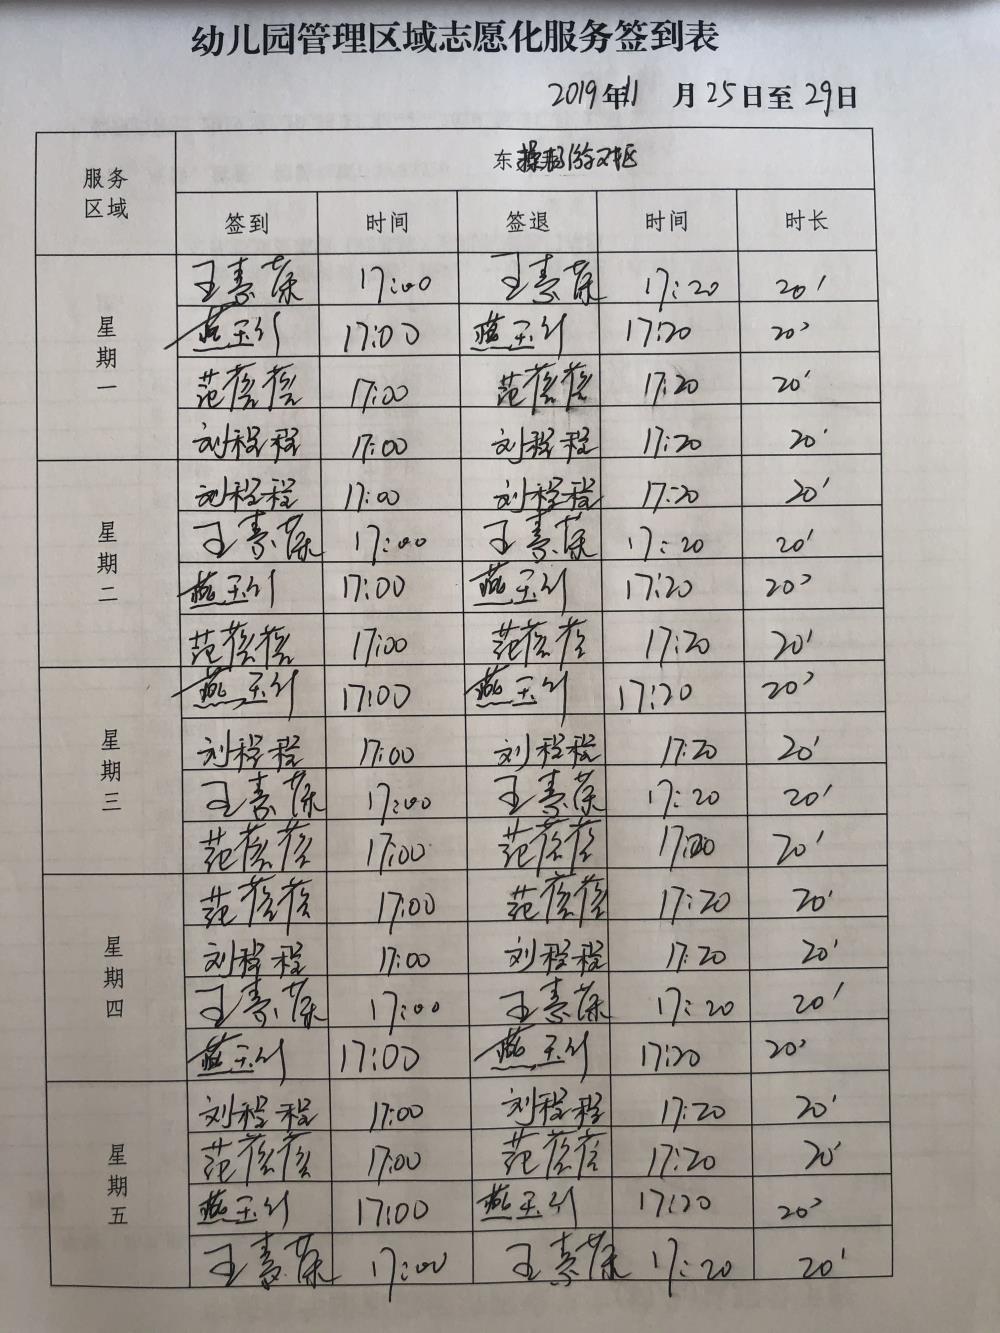 幼儿园管理区域志愿化服务签到表
2019年11月25日至29日
服务区域 东
签到 时间 签退 时间 时长
星期一
王素葆 17:00 王素葆 17:20 20'
燕玉 17:00 燕玉 17:20 20'
范蓓蓓 17:00 范蓓蓓 17:20 20'
刘程程 17:00 刘程程 17:20 20'
星期二
刘程程 17:00 刘程程 17:20 20'
王素葆 17:00 王素葆 17:20 20'
燕玉 17:00 燕玉 17:20 20'
范蓓蓓 17:00 范蓓蓓 17:20 20'
星期三
燕玉 17:00 燕玉 17:20 20'
刘程程 17:00 刘程程 17:20 20'
王素葆 17:00 王素葆 17:20 20'
范蓓蓓 17:00 范蓓蓓 17:20 20'
星期四
范蓓蓓 17:00 范蓓蓓 17:20 20'
刘程程 17:00 刘程程 17:20 20'
王素葆 17:00 王素葆 17:20 20'
燕玉 17:00 燕玉 17:20 20'
星期五
刘程程 17:00 刘程程 17:20 20'
范蓓蓓 17:00 范蓓蓓 17:20 20'
燕玉 17:00 燕玉 17:20 20'
王素葆 17:00 王素葆 17:20 20'